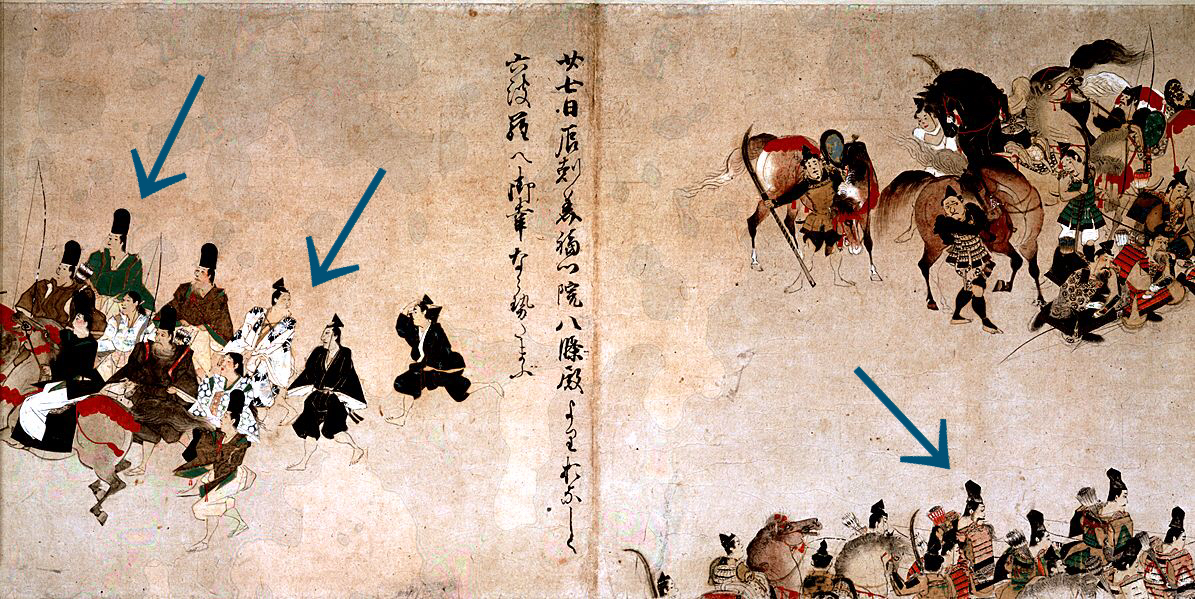 廿七日辰剋美福门院八條殿よりおなしく
六波羅へ御幸ならせたまふ